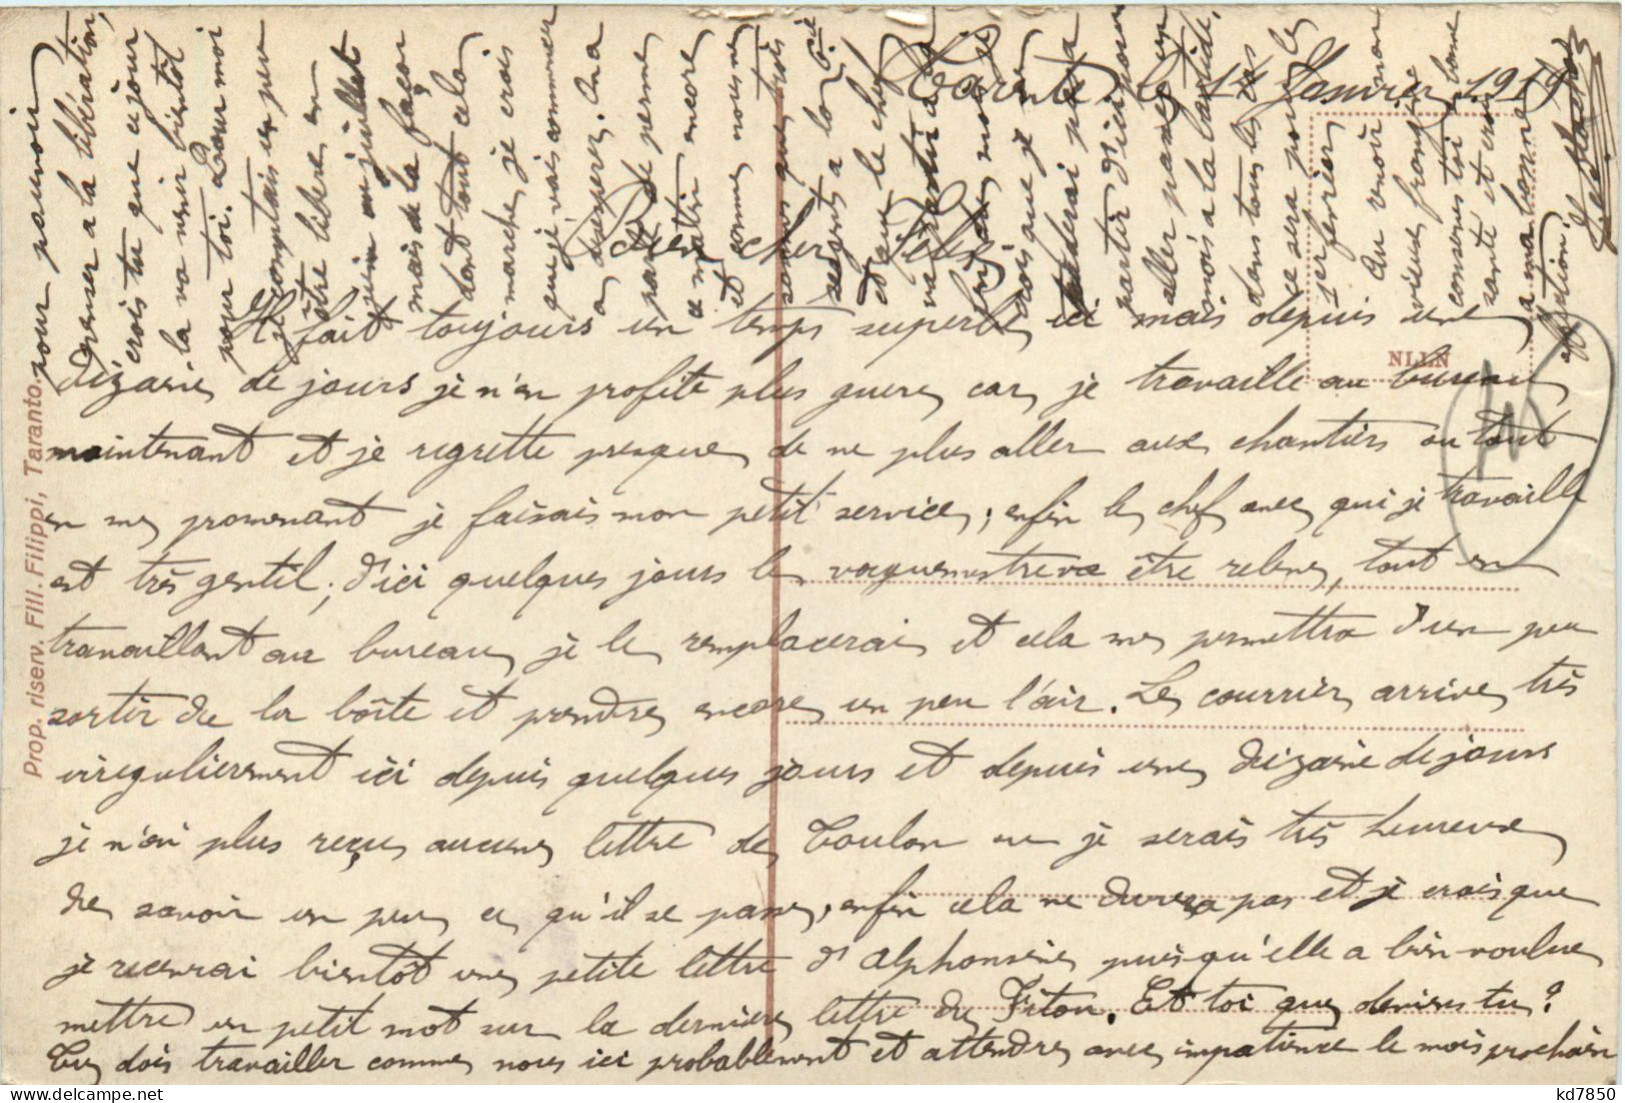 Tarente, le 14 Janvier 1919
Bien cher Félix
Il fait toujours un temps superbe ici mais depuis une
dizaine de jours je n'en profite plus guere, car je travaille au bureau
maintenant et je regrette presque de ne plus aller aux chantiers ou tout
en me promenant je faisais mon petit service, enfin le chef avec qui je travaille
est très gentil; d'ici quelques jours le vaguemestre va être releve, tout en
travaillant au bureau, je le remplacerai et cela me permettra d'un peu
sortir de la boîte et prendre encore un peu l'air. Le courrier arrive très
irregulierement ici depuis quelques jours et depuis une dizaine de jours
je n'ai plus reçu aucune lettre de Toulon ou je serais très heureux
de savoir un peu ce qu'il se passe, enfin cela ne durera pas et je crois que
je recevrai bientôt une petite lettre d'Alphonsine puisqu'elle a bien voulue
mettre un petit mot sur la derniere lettre de Titou. Et toi que deviens tu?
Tu dois travailler comme nous ici probablement et attendre avec impatience le mois prochain
pour pouvoir
penser a la libération,
crois tu que ce jour
la va venir bientôt
pour toi. Pour moi
je comptais un peu
être libre en
juin ou juillet
mais de la façon
dont tout cela
marche, je crois
que je vais commencer
a desesperer. On a
parlé de permes
ce matin encore
et comme nous ne
sommes que trois
sergents a la Cie
et que le chef
va partir
mois a la bastide,
dans tous les cas
ce sera pour le
1er fevrier
Au revoir mon
vieux frangin
conserve toi en bonne
santé et crois
a ma bonne
affection.
Prop. riserv. Flll. Filippi, Taranto.
NLLN
kd7850